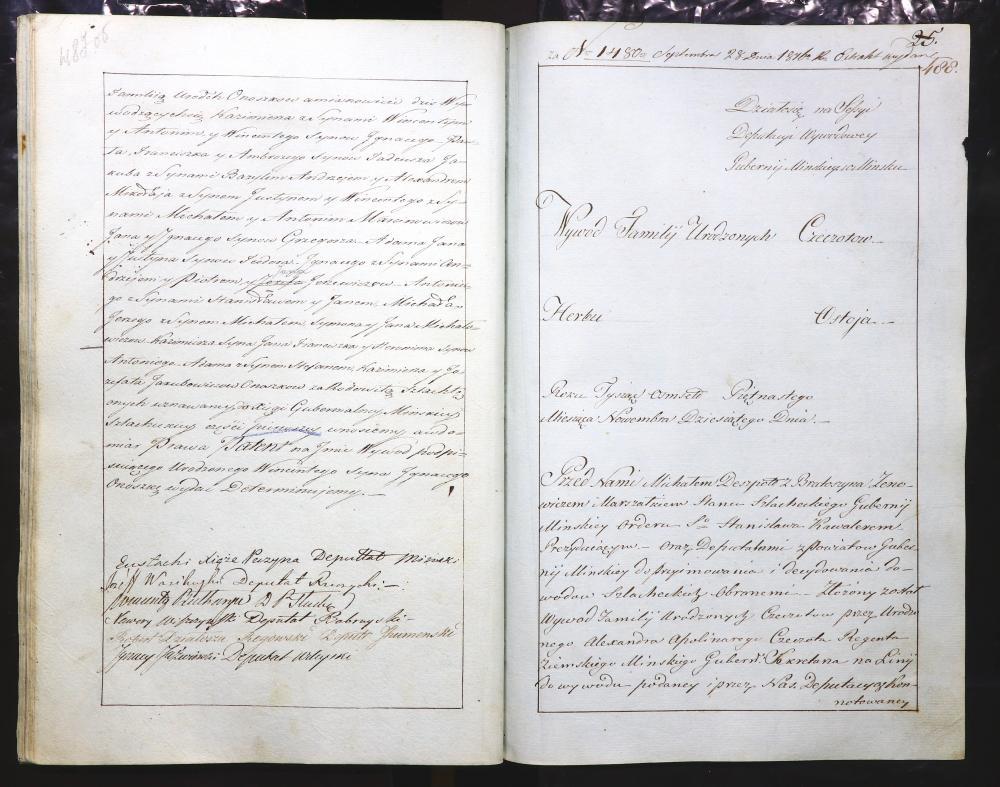 Familią Urodzh Onoszkow a mianowicie dziś Wy-
wodzących się Kazimierza z Synami Wincentym
y Antonim, y Wincentego Synow Jgnacego
Franciszka y Ambrożego Synow Tadeusza Ja-
kuba z Synami Bazylim Andrzejem y Alexandrem
Mikołaja z Synem Justynem y Wincentego z Sy-
nami Michałem y Antonim Mironowiczow
Jana y Jgnacego Synow Grzegorza Adama Jana
y Justyna Synow Teodora Jgnacego z Synami An-
drzejem y Piotrem y Jozefa Jozewiczow Antonie-
go z Synami Stanisławem y Janem, Michała
Jerzego z Synem Michałem, Symona y Jana Michało-
wiczow Kazimierza Syna Jana Franciszka y Hieronima Synow
Antoniego Adama z Synem Stefanem, Kazimierza y Jo-
zefata Jakubowiczow Onoszkow za Rodowitą Szlachtę
onych uznawamy, do Xięgi Gubernalney Mińskiey
Szlacheckiey części pierwszey wnosiemy a w do-
miar Prawa Patent na Jmie Wywod podpi-
sującego Urodzonego Wincentego Syna Jgnacego
Onoszki wydać Determinujemy.
Eustachi Xiąże Puzyna Deputtat Mozyrski
Deputat Rzeczycki
D P Słucki
Deputat Bobruyski
Deputt Jhumenski
Jgnacy Deputat Wileyski
25.
488.
za No 1480 Septembra 28 Dnia 1816 Ru Extrakt wydan
Działosię na Sessyi
Deputacyi Wywodowey
Gubernij Minskiey w Minsku
Wywod Familij Urodzonych Czeczotow
Herbu Ostoja
Roku Tysiąc osmset Piętnastego
Miesiąca Nowembra Dziesiątego Dnia
Przed Nami Michałem Despott z Bratoszyna Zeno-
wiczem Marszałkiem Stanu Szlacheckiego Gubernij
Minskiey Orderu So Stanisława Kawalerem
Prezyduiącym oraz Deputatami z powiatow Guber-
nij Minskiey do przyimowania i decydowania do-
wodow Szlacheckich Obranemi Złożony został
Wywod Familij Urodzonych Czeczotow przez Urodzo-
nego Alexandra Apolinarego Czeczota Regenta
Ziemskiego Minskiego Gubern: Sekretarza na Linij
do wywodu podaney i przez Nas. Deputacyą Kon-
notowaney